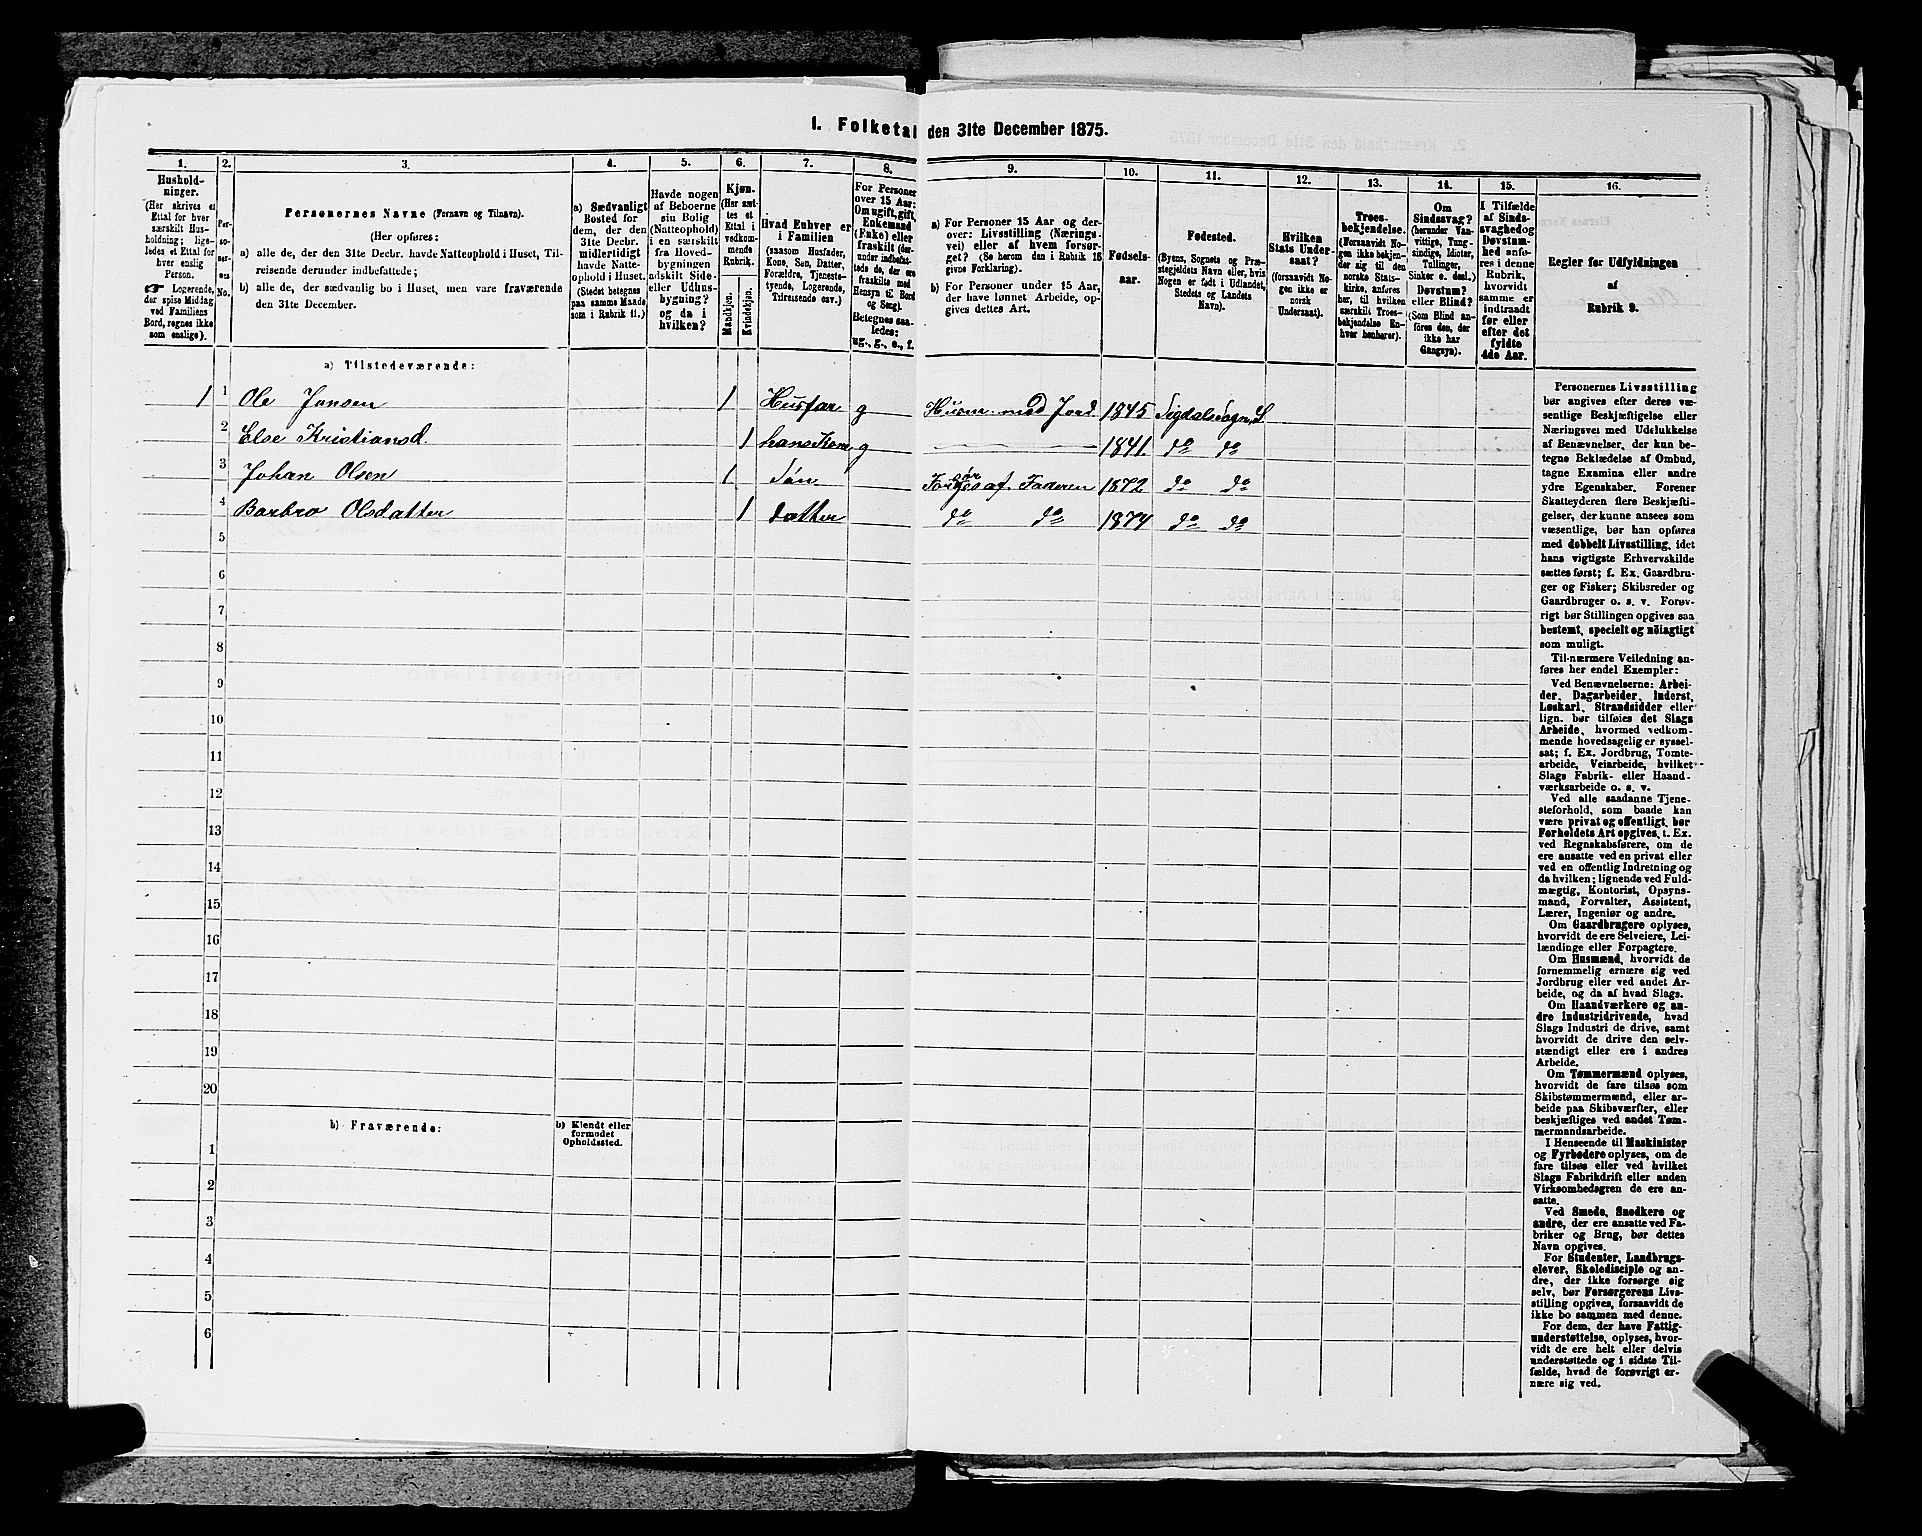 I. Folketal den 31te December 1875.
1. 2. 3. 4. 5. 6. 7. 8. 9. 10. 11. 12. 13. 14. 15. 16.
Hushold-
ninger.
(Her skrives et
Ettal for hver
særskilt Hus-
holdning; lige-
ledes et Ettal for
hver enslig
Person.
☛ Logerende,
der spise Middag
ved Familiens
Bord, regnes ikke
som enslige).
Per-
so-
ner-
nes
No.
Personernes Navne (Fornavn og Tilnavn).
(Her opføres:
a) alle de, der den 31te Decbr. havde Natteophold i Huset, Til-
reisende derunder indbefattede;
b) alle de, der sædvanlig bo i Huset, men vare fraværende
den 31te December.
a) Sædvanligt
Bosted for
dem, der den
31te Decbr.
midlertidigt
havde Natte-
ophold i Huset.
(Stedet betegnes
paa samme Maade,
som i Rubrik 11.)
Havde nogen
af Beboerne
sin Bolig
(Natteophold)
i en særskilt
fra Hoved-
bygningen
adskilt Side-
eller Udhus-
bygning?
og da i
hvilken?
Kjøn.
(Her sæt-
tes et
Ettal i
vedkom-
mende
Rubrik.
Mandkjøn.
Kvindekjøn.
Hvad Enhver er
i Familien
(saasom Husfader,
Kone, Søn, Datter,
Forældre, Tjeneste-
tyende, Logerende,
Tilreisende osv.)
For Personer
over 15 Aar:
Om ugift, gift,
Enkemand
(Enke) eller
fraskilt (der-
under indbefat-
tede de, der ere
fraskilte med
Hensyn til Bord
og Seng).
Betegnes saa-
ledes:
ug., g., e., f.
a) For Personer 15 Aar og der-
over: Livsstilling (Nærings-
vei) eller af hvem forsør-
get? (Se herom den i Rubrik 16
givne Forklaring).
b) For Personer under 15 Aar,
der have lønnet Arbeide, op-
gives dettes Art.
Fødsels-
aar.
Fødested.
(Byens, Sognets og Præ-
stegjeldets Navn eller, hvis
Nogen er født i Udlandet,
Stedets og Landets
Navn).
Hvilken
Stats Under-
saat?
(forsaavidt No-
gen ikke er
norsk
Undersaat).
Troes-
bekjendelse.
(Forsaavidt No-
gen ikke bekjen-
der sig til den
norske Stats-
kirke, anføres
her, til hvilken
særskilt Troes-
bekjendelse En-
hver henhører).
Om
Sindssvag?
(herunder Van-
vittige, Tung-
sindige, Idioter,
Tullinger,
Sinker o. desl.)
Døvstum?
eller Blind?
(Som Blind an-
føres den, der
ikke har
Gangsyn).
I Tilfælde
af Sinds-
svaghed og
Døvstum-
hed anfø-
res i denne
Rubrik,
hvorvidt
samme er
indtraadt
før eller
efter det
fyldte
4de Aar.
Regler for Udfyldningen
af
Rubrik 9.
a) Tilstedeværende:
1 1 Ole Jonsen 1 Husfar g Husm. med Jord 1845 Sigdals
2 Else Kristiansd. 1 hans Kone g 1841 do do
3 Johan Olsen 1 Søn af Faderen 1872 do do
4 Barbro Olsdatter 1 datter do do 1874 do do
5
6
7
8
9
10
11
12
13
14
15
16
17
18
19
20
b) Fraværende:
b) Kjendt eller
formodet
Opholdssted.
1
2
3
4
5
6
Personernes Livsstilling
bør angives efter deres væ-
sentlige Beskjæftigelse eller
Næringsvei med Udelukkelse
af Benævnelser, der kun be-
tegne Beklædelse af Ombud,
tagne Examina eller andre
ydre Egenskaber. Forener
Skatteyderen flere Beskjæfti-
gelser, der kunne ansees som
væsentlige, bør han opføres
med dobbelt Livsstilling, idet
hans vigtigste Erhvervskilde
sættes først; f. Ex. Gaardbru-
ger og Fisker; Skibsreder og
Gaardbruger o. s. v. Forøv-
rigt bør Stillingen opgives saa
bestemt, specielt og nöiagtigt
som muligt.
Til nærmere Veiledning an-
føres her endel Exempler:
Ved Benævnelserne: Arbei-
der, Dagarbeider, Inderst,
Løskarl, Strandsidder eller
lign. bør tilføies det Slags
Arbeide, hvormed vedkom-
mende hovedsagelig er syssel-
sat; f. Ex. Jordbrug, Tomte-
arbeide, Veiarbeide, hvilket
Slags Fabrik- eller Haand-
værksarbeide o. s. v.
Ved alle saadanne Tjene-
steforhold, som baade kan
være privat og offentligt, bør
Forholdets Art opgives, t. Ex.
ved Regnskabsførere, om de
ere ansatte ved en privat eller
ved en offentlig Indretning og
da hvilken; lignende ved Fuld-
mægtig, Kontorist, Opsyns-
mand, Forvalter, Assistent,
Lærer, Ingeniør og andre.
Om Gaardbrugere oplyses,
hvorvidt de ere Selveiere, Lei-
lændinge eller Forpagtere.
Om Husmænd, hvorvidt de
fornemmelig ernære sig ved
Jordbrug eller ved andet Ar-
beide, og da af hvad Slags.
Om Haandværkere og an-
dre Industridrivende, hvad
Slags Industri de drive, samt
hvorvidt de drive den selv-
stændigt eller ere i andres
Arbeide.
Om Tømmermænd oplyses,
hvorvidt de fare tilsøs som
Skibstømmermænd, eller ar-
beide paa Skibsværfter, eller
beskjæftiges ved andet Tøm-
mermandsarbeide.
I Henseende til Maskinister
og Fyrbødere oplyses, om de
fare tilsøs eller ved hvilket
Slags Fabrikdrift eller anden
Virksomhedsgren de ere an-
satte.
Ved Smede, Snedkere og
andre, der ere ansatte ved Fa-
briker og Brug, bør dettes
Navn opgives.
For Studenter, Landbrugs-
elever, Skoledisciple og an-
dre, der ikke forsørge sig
selv, bør Forsørgerens Livs-
stilling opgives, forsaavidt de
ikke bo sammen med denne.
For dem, der have Fattig-
understøttelse, oplyses, hvor-
vidt de ere helt eller delvis
understøttede og i sidste Til-
fælde, hvad de forøvrigt er-
nære sig ved.